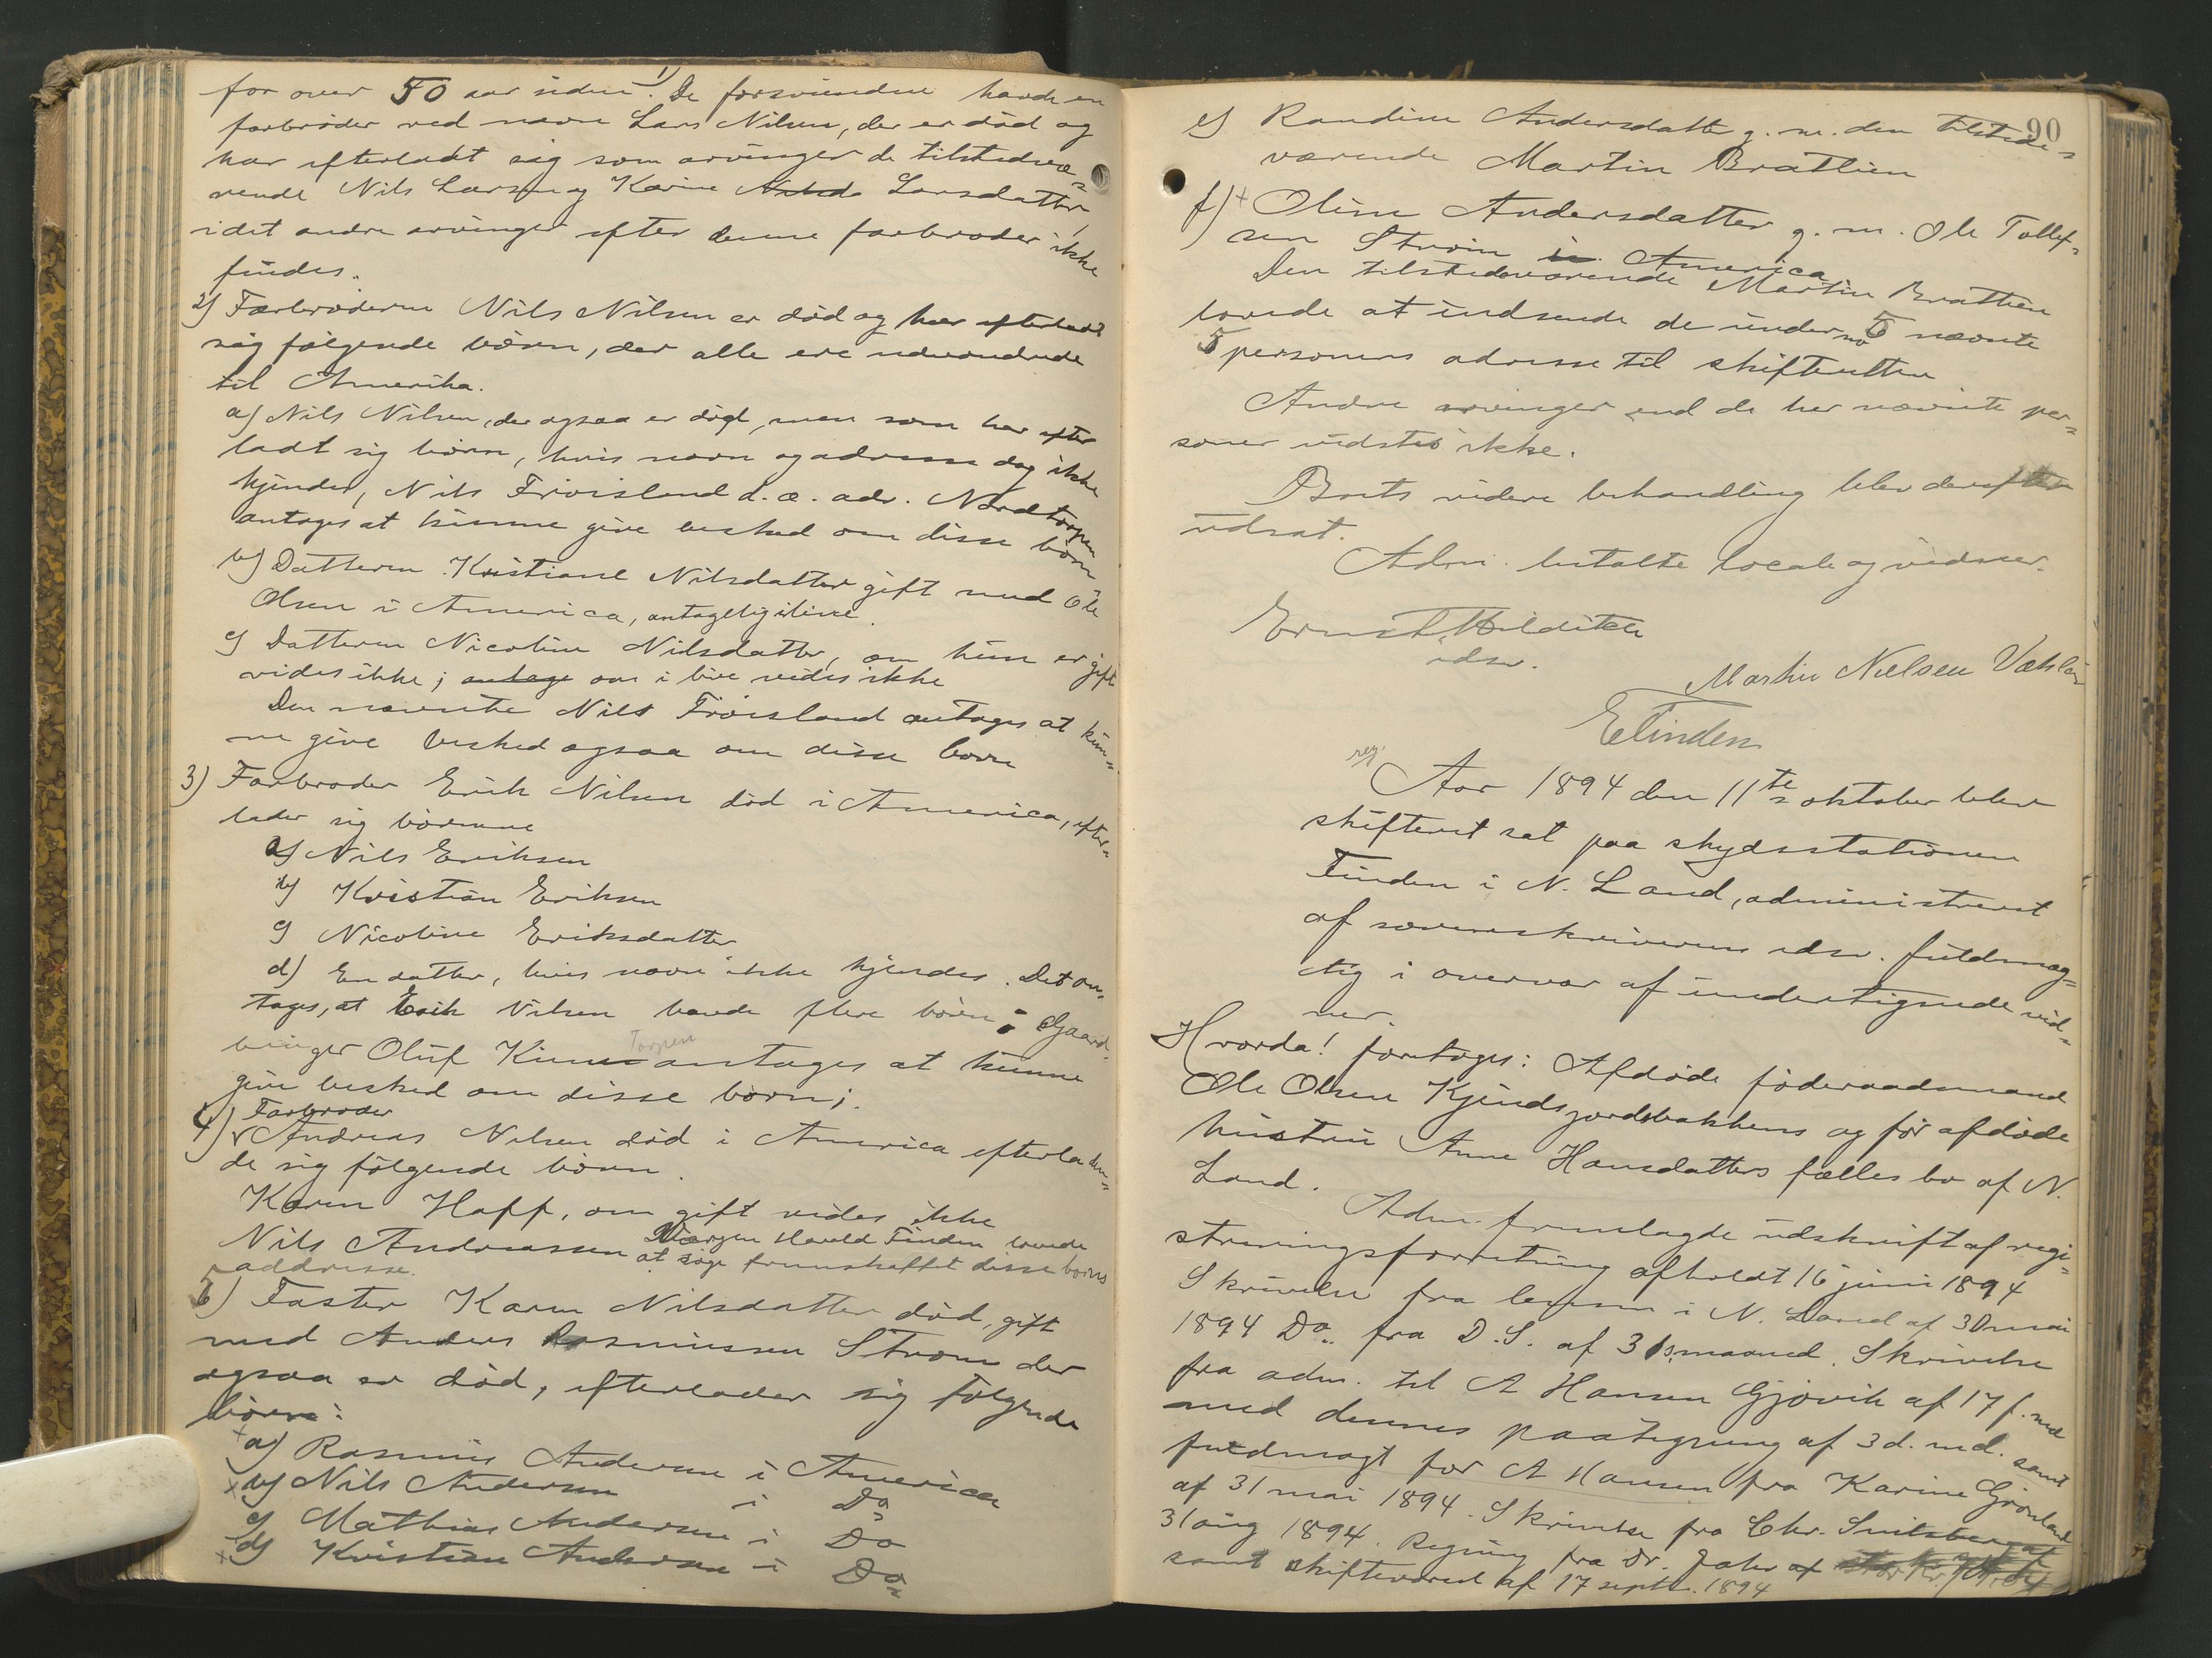 for over 50 aar siden. 1) De forsvundne havde en
farbroder ved navn Lars Nilsen, der er död og
har efterladt sig som arvinger de tilstedevæ=
rende Nils Larsen og Karine Larsdatter,
idet andre arvinger efter denne farbroder ikke
findes.
2) Farbroderen Nils Nilsen er död og har efterladt
sig fölgende börn, der alle ere udvandrede
til Amerika.
a) Nils Nilsen, der ogsaa er död, men som har efter
ladt sig börn, hvis navn og adresse dog ikke
kjendes, Nils Fröisland d. æ. adr. Nordtorpen
antages at kunne give besked om disse börn
b) Datteren Kristiane Nilsdatter gift med Ole
Olsen i America, antagelig ilive.
c) Datteren Nicoline Nilsdatter, om hun er gift
vides ikke; antage om i live vides ikke
Den nævnte Nils Fröisland antages at kun=
ne give besked ogsaa om disse börn
3) Farbroder Erik Nilsen död i America, efter=
lader sig börnene
a) Nils Eriksen
b) Kristian Eriksen
c) Nicoline Eriksdatter
d) En datter, hvis navn ikke kjendes. Det an=
tages, at Erik Nilsen havde flere börn; Gaard=
bruger Oluf Kinn Torpen antages at kunne
give besked om disse börn;
4) Farbroder
Andreas Nilsen död i America efterladen=
de sig fölgende börn.
Karen Haff, om gift vides ikke
Nils Andreassen Værgen Harald Finden lovede
at söge fremskaffet disse börns
addresse.
5) Faster Karen Nilsdatter död, gift
med Anders Rasmussen Ström der
ogsaa er död, efterlader sig fölgende
börn:
+ a) Rasmus Andersen i America
+ b) Nils Andersen i Do
c) Mathias Andersen i Do
+ d) Kristian Andersen i Do
90
e) Randine Andersdatter g. m. den tilstede=
værende Martin Bratlien
f) + Oline Andersdatter g. m. Ole Tollef=
sen Ström i America
Den tilstedeværende Martin Bratlien
lovede at indsende de under no 5 nævnte
5 personers adresse til skifteretten
Andre arvinger end de her nævnte per=
soner vidstes ikke.
Boets videre behandling blev derefter
udsat.
Adm. betalte locale og vidner.
Ernst Milditch
edsv.
Martin Nielsen Væhslien
E Finden
reg.
Aar 1894 den 11te oktober blev
skifteret sat paa skydsstationen
Finden i N. Land, administreret
af sorenskriverens edsv. fuldmæg=
tig i overvær af undertegnede vid=
ner.
Hvorda! foretoges: Afdöde föderaadsmand
Ole Olsen Kjendsjordsbakkens og för afdöde
hustru Anne Hansdatters fælles bo af N.
Land.
Adm. fremlagde udskrift af regi=
streringsforretning afholdt 16 juni 1894
Skrivelse fra lensm. i N. Land af 30 mai
1894 Do fra D. S. af 31 s. maaned. Skrivelse
fra adm. til A Hansen Gjövik af 17 f. md
med dennes paategning af 3 d. md. samt
fuldmagt for A Hansen fra Karine Grönland
af 31 mai 1894. Skrivelse fra Chr. Snilsberg af
31 aug 1894. Regning fra Dr. Jahr
samt skiftevared af 17 septr. 1894